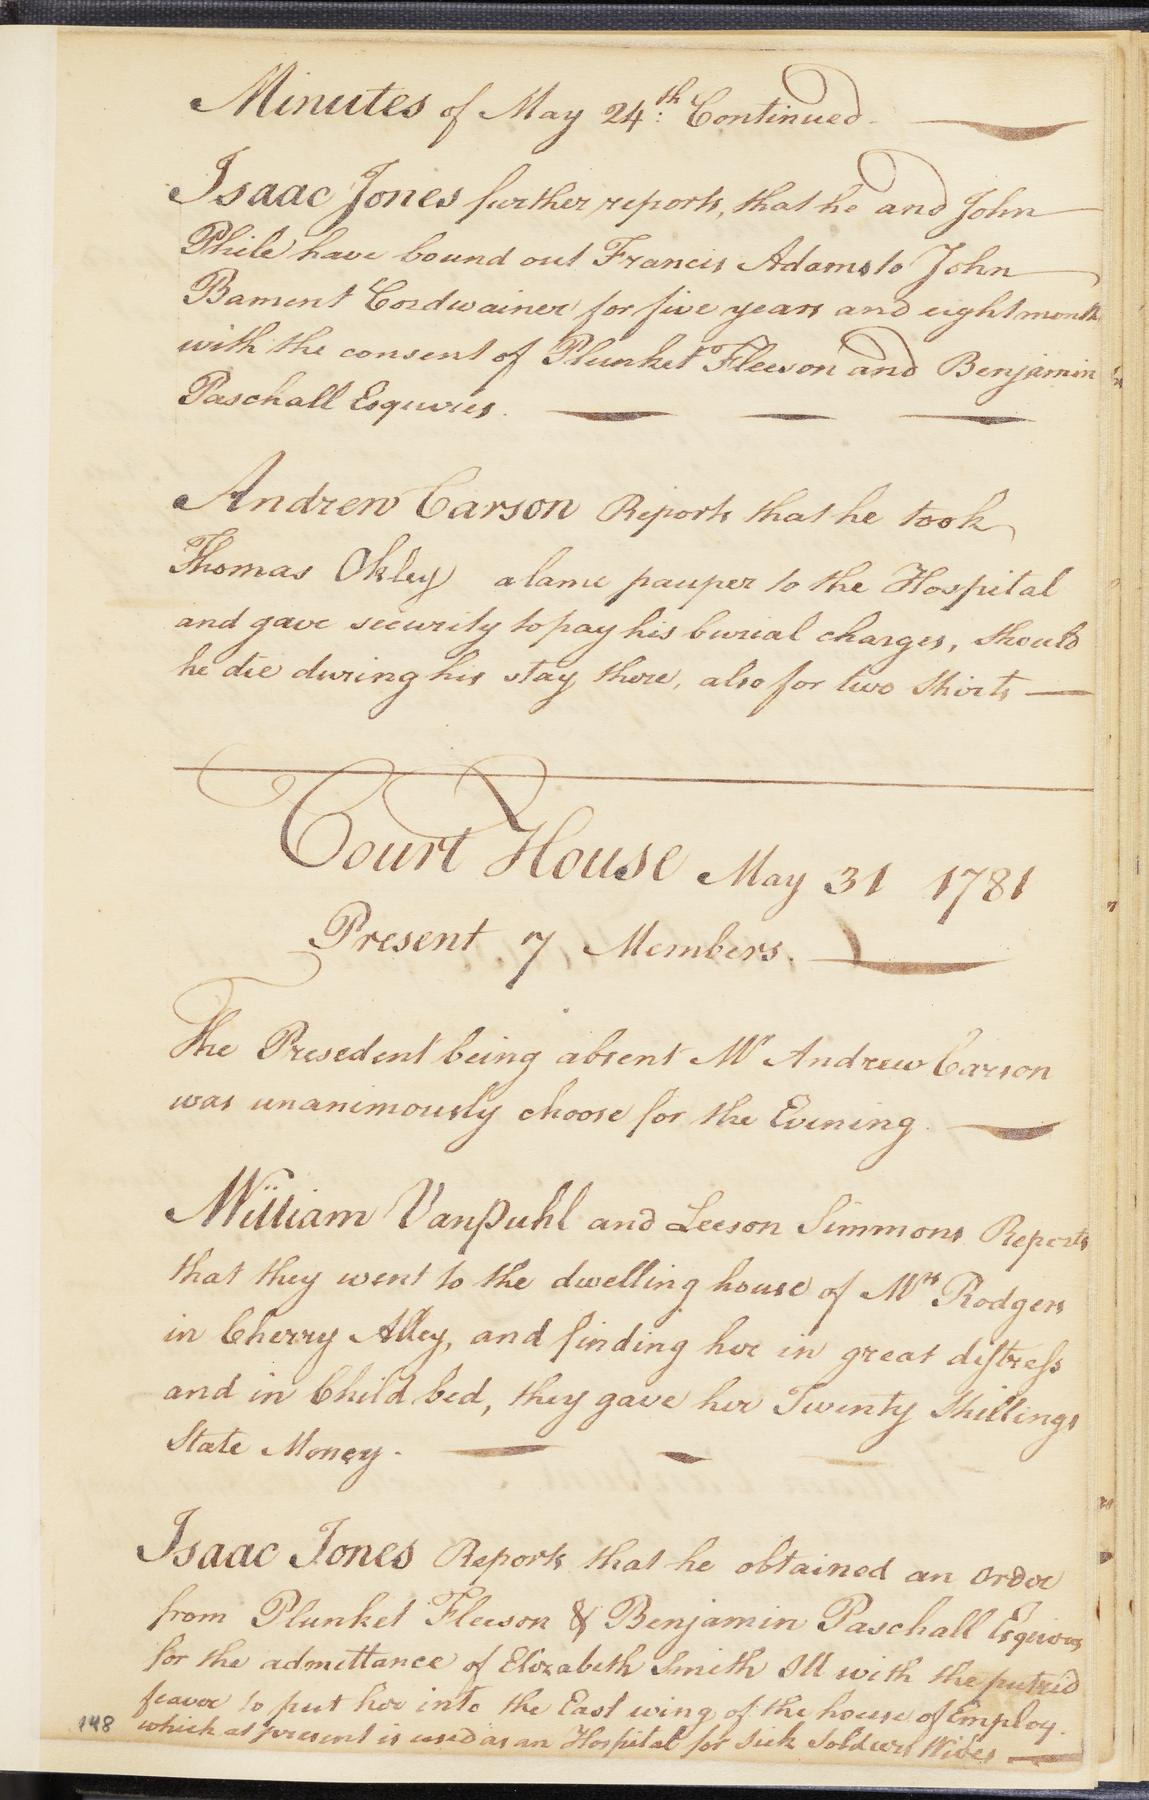 Minutes of May 24th: Continued.
Isaac Jones further reports, that he and John
Phile have bound out Francis Adams to John
Bament Cordwainer for five years and eight months
with the consent of Plunket Fleeson and Benjamin
Paschall Esquires.
Andrew Carson Reports that he took
Thomas Okley a lame pauper to the Hospital
and gave security to pay his burial charges, should
he die during his stay there, also for two Shirts
Court House May 31 1781
Present 7 Members.
The Presedent being absent Mr Andrew Carson
was unanimously choose for the Evening.
William VanPuhl and Leeson Simmons Reports
that they went to the dwelling house of Mrs Rodgers
in Cherry Alley, and finding her in great distress
and in Child bed, they gave her Twenty Shillings
State Money.
Isaac Jones Reports that he obtained an order
from Plunket Fleeson & Benjamin Paschall Esquires
for the admittance of Elizabeth Smith Ill with the putrid
feaver to put her into the East wing of the house of Employ.
which at present is used as an Hospital for Sick Soldiers Wives
148